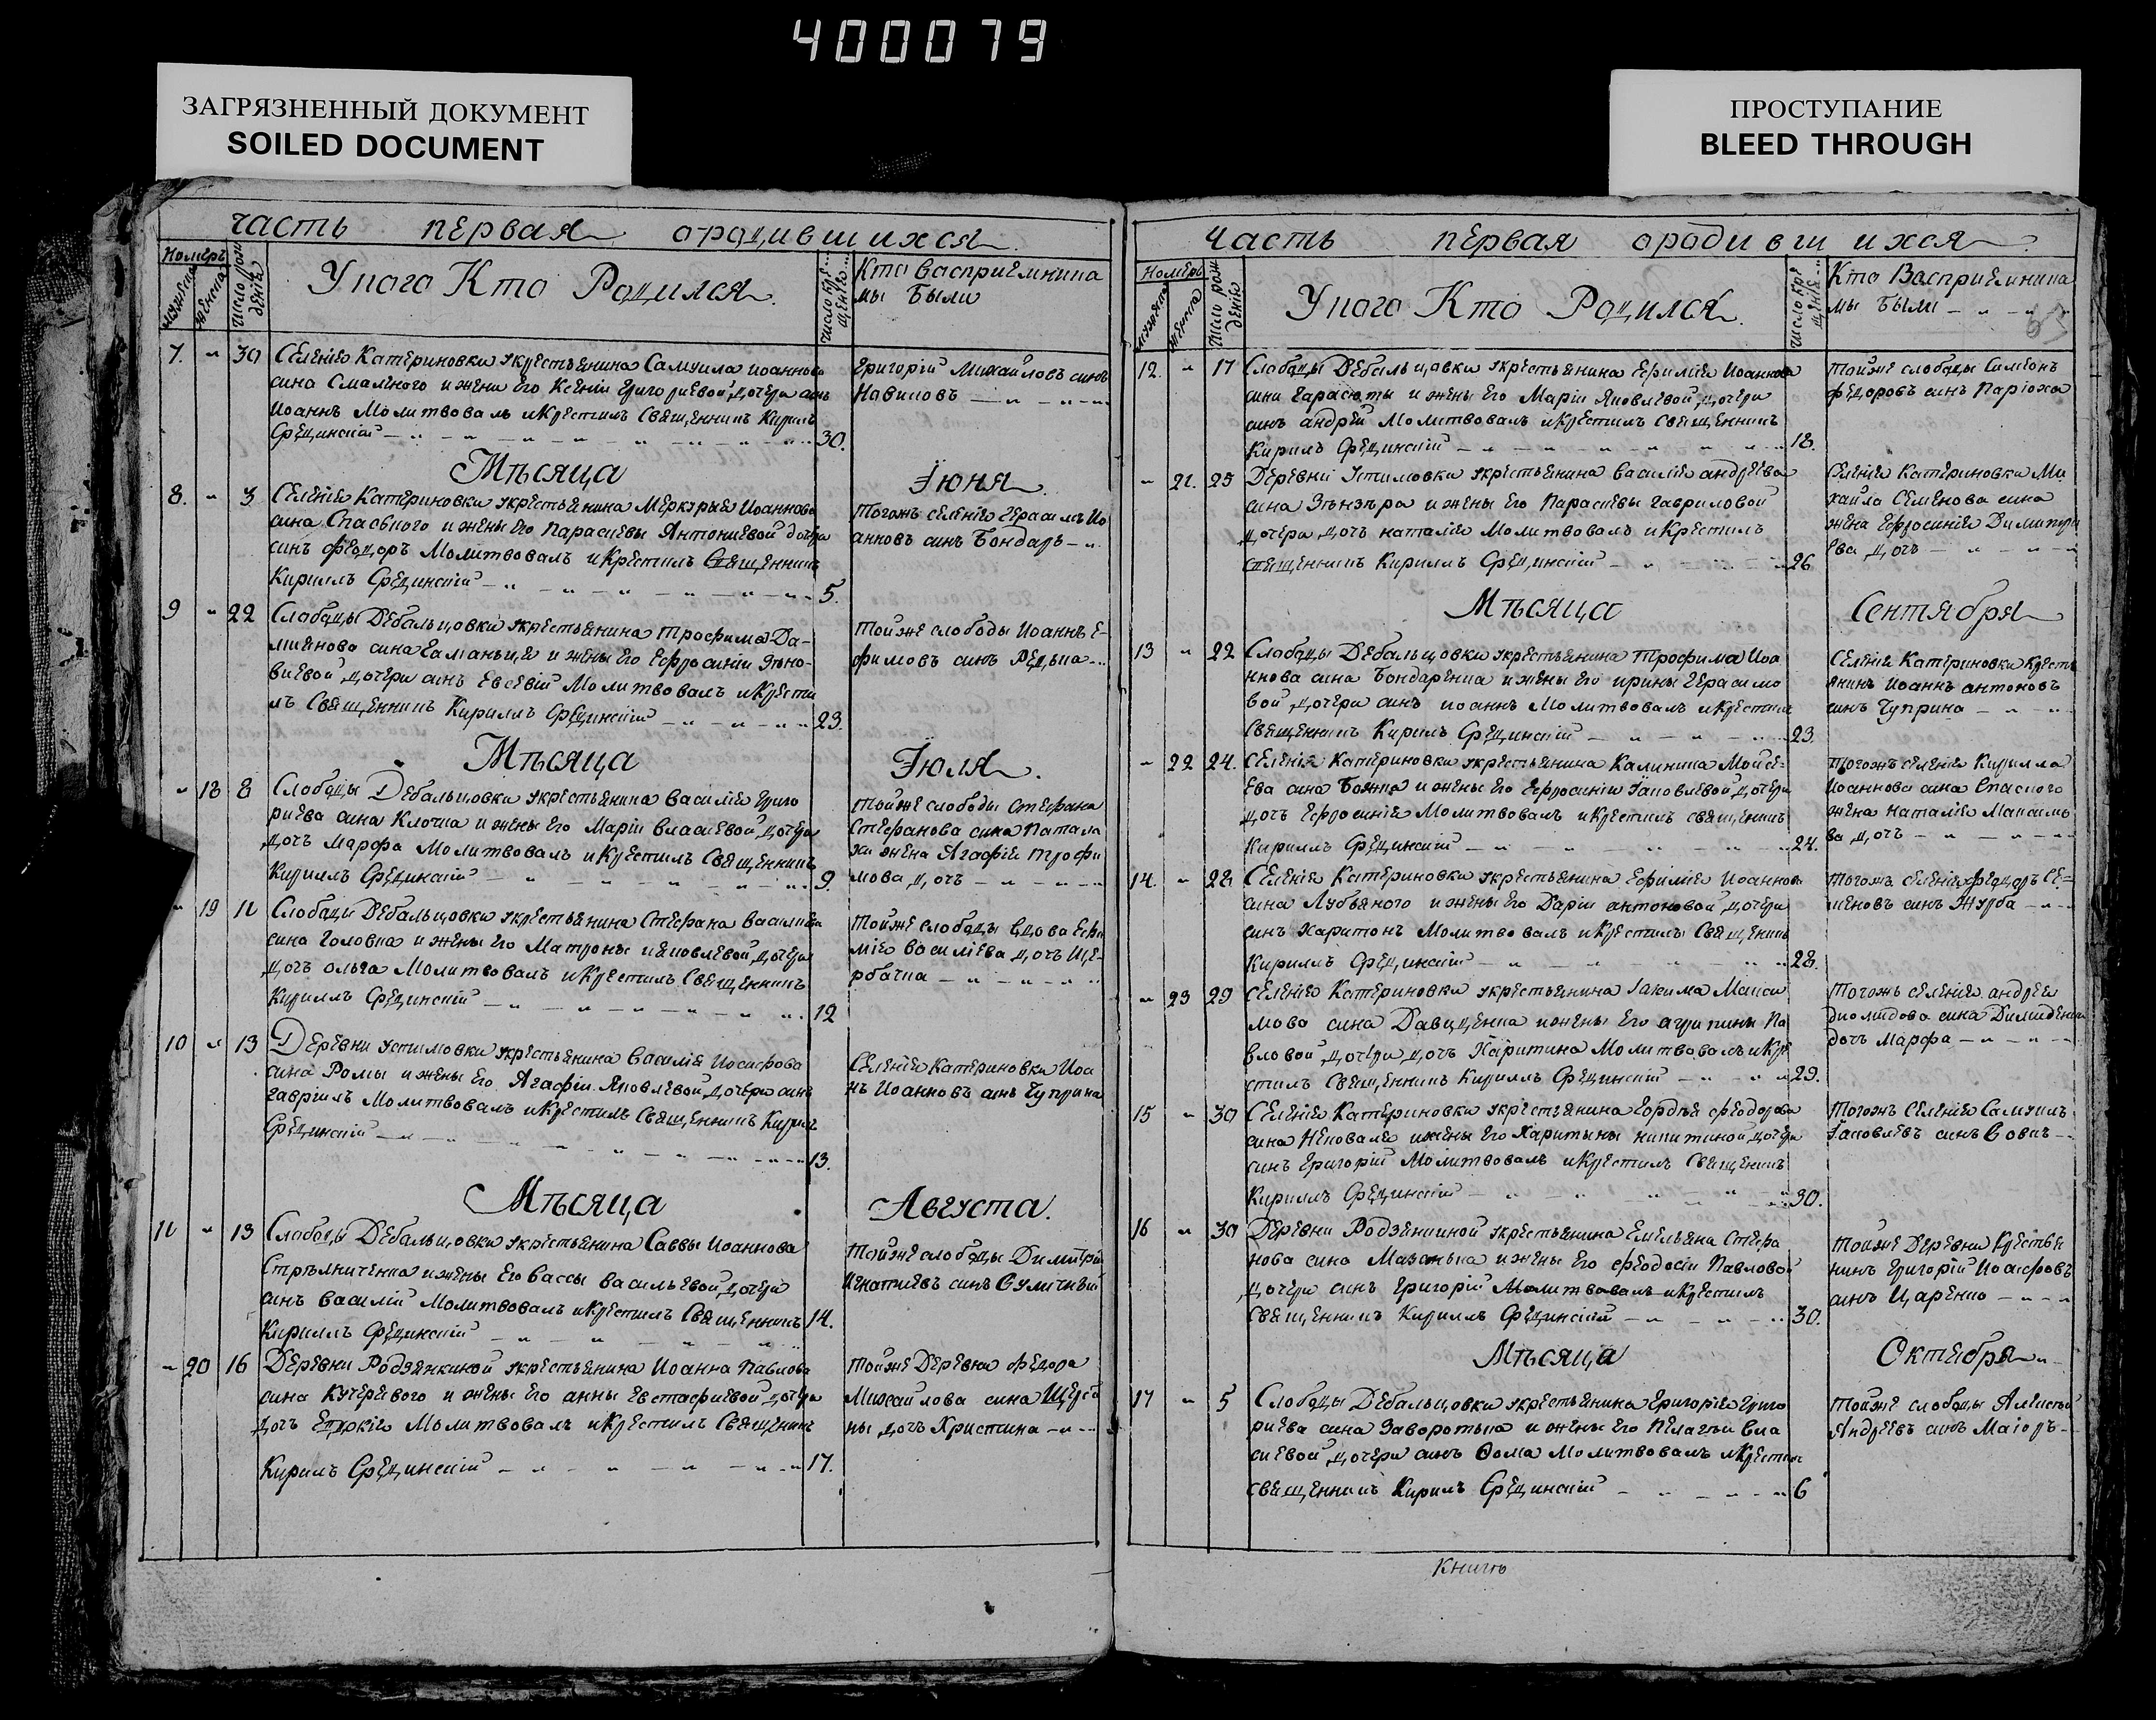 400079
ЗАГРЯЗНЕННЫЙ ДОКУМЕНТ
SOILED DOCUMENT
ПРОСТУПАНИЕ
BLEED THROUGH
часть первая ородившихся
Номеръ
Число рождения
У кого Кто Родился
Кто Восприемника
мы были
7. " 30 Селения Катериновки укрестьянина Самуила иоаннова
сина Смаленого и жени его Ксении григориевой дочери синъ
Иоаннъ Молитвовалъ икрестилъ Священникъ Кирилъ
Срединский 30.
Григорий Михайловъ синъ
Мѣсяца Июня
8. " 3 Селения Катериновки укрестьянина Меркурия Иоаннова
сина Спасьного и жены его Парасиевы Антониевой дочери
синъ Федоръ Молитвовалъ икрестилъ Священникъ
Кириллъ Срединский 5.
Тогожъ селения Герасимъ Ио
анновъ синъ Бондарь
9 " 22 Слободы Дебальцовки укрестьянина Трофима Да-
миянова сина и жены его Ефросинии Зѣно-
виевой дочери синъ Евсевий Молитвовалъ икрести
лъ Священникъ Кириллъ Срединский 23.
Тойже слободы Иоаннъ Е-
фимовъ синъ Редька
Мѣсяца Июля
" 18 8 Слободы Дебальцовки укрестьянина Василия Григо
риева сина Клочка и жены его Марии Власиевой дочери
дочь Марфа Молитвовалъ икрестилъ Священникъ
Кириллъ Срединский 9.
Тойже слободы Стефана
Стефанова сина
жена Агафия Трофи
мова дочь
" 19 11 Слободы Дебальцовки укрестьянина Стефана Василиева
сина Головка и жены его Матроны Ияковлевой дочери
дочь Ольга Молитвовалъ икрестилъ Священникъ
Кириллъ Срединский 12
Тойже слободы вдова Ефи
мия Василиева дочь Ще-
рбачка
10 " 13 Деревни Устимовки укрестьянина Василия Иосифова
сина Ромы и жены его Агафии Яковлевой дочери синъ
Гавриилъ Молитвовалъ икрестилъ Священникъ Кирилъ
Срединский 13.
Селения Катериновки Иоа
нъ Иоанновъ синъ Чуприна
Мѣсяца Августа.
11 " 13 Слободы Дебальцовки укрестьянина Саввы Иоаннова
Стрѣлниченка и жены его Вассы Васильевой дочери
синъ Василий Молитвовалъ икрестилъ Священникъ 14.
Кириллъ Срединский
Тойже слободы Димитрий
Игнатиевъ синъ
" 20 16 Деревни Родзянкиной укрестьянина Иоанна Павлова
сина Кучерявого и жены его Анны Евстафиевой дочери
дочь Молитвовалъ икрестилъ Священникъ
Кирилъ Срединский 17.
Тойже Деревни Федора
Михайлова сина
дочь Христина
Часть первая ородившихся
Номеръ
У кого Кто Родился
Кто Восприемника
мы были
12. " 17 Слободы Дебальцовки укрестьянина Ефимия Иоаннова
сина Гарасюты и жены его Марии Яковлевой дочери
синъ Андрей Молитвовалъ икрестилъ Священникъ
Кирилъ Срединский 18.
Тойже слободы Симеонъ
Федоровъ синъ Парюха
" 21. 25 Деревни Устимовки укрестьянина Василия Андреева
сина и жены его Парасиевы Гавриловой
дочери дочь Наталия Молитвовалъ икрестилъ
священникъ Кириллъ Срединский 26
Селения Катериновки Ми
хаила Семенова сина
жена Ефросиния Димитри
ева дочь
Мѣсяца Сентября
13 " 22 Слободы Дебальцовки укрестьянина Трофима Иоа
ннова сина Бондаренка и жены его Ирины Герасимо
вой дочери синъ Иоаннъ Молитвовалъ икрестилъ
Священникъ Кирилъ Срединский 23.
Селения Катериновки крестъ
янинъ Иоаннъ Антоновъ
синъ Чуприна
" 22 24. Селения Катериновки укрестьянина Калиника Мойсе-
ева сина Божка и жены его Ефросинии Яковлевой дочери
дочь Ефросиния Молитвовалъ икрестилъ священникъ
Кириллъ Срединский 24.
Тогожъ селения Кирилла
Иоаннова сина Спасного
жена Наталия Максимо
ва дочь
14. " 28 Селения Катериновки укрестьянина Ефимия Иоаннова
сина Лубьяного и жены его Дарии Антоновой дочери
синъ Харитонъ Молитвовалъ икрестилъ Священникъ
Кириллъ Срединский 28.
Тогожъ селения Федоръ Се-
меновъ синъ Журба
" 23 29 Селения Катериновки укрестьянина Iакима Макси
мова сина Давидденка и жены его Агрипины Па
вловой дочери дочь Харитина Молитвовалъ икре
стилъ Священникъ Кириллъ Срединский 29.
Тогожъ селения Андрея
Диомидова сина
дочь Марфа
15 " 30 Селения Катериновки укрестьянина Гордѣя Феодорова
сина Коваля и жены его Харитины Никитиной дочери
синъ Григорий Молитвовалъ икрестилъ Священникъ
Кириллъ Срединский 30.
Тогожъ Селения Самуилъ
Iаковлевъ синъ Вовкъ
16 " 30 Деревни Родзянкиной укрестьянина Емельяна Стефа
нова сина Мазанька и жены его Феодосии Павловой
дочери синъ Григорий Молитвовалъ икрестилъ
Священникъ Кириллъ Срединский 30.
Тойже Деревни крестья
нинъ Григорий Иосифовъ
синъ Царенко
Мѣсяца Октября
17 " 5 Слободы Дебальцовки укрестьянина Григория Григо
риева сина Заворотька и жены его Пелагѣи Вла
сиевой дочери синъ Ѳома Молитвовалъ икрестилъ
священникъ Кирилъ Срединский 6
Тойже слободы Алексѣй
Андреевъ синъ Маиоръ